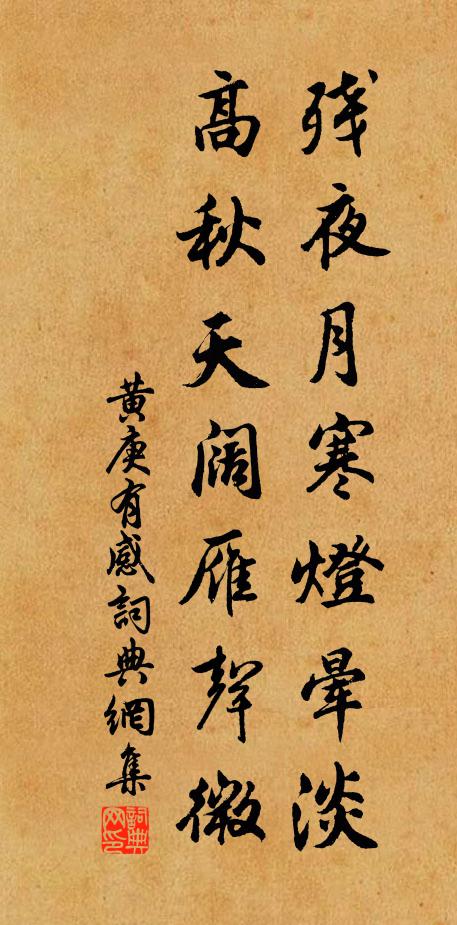 残夜月寒燈暈淡
高秋天阔雁聲微
黄庚有感詞典網集
詞典网印